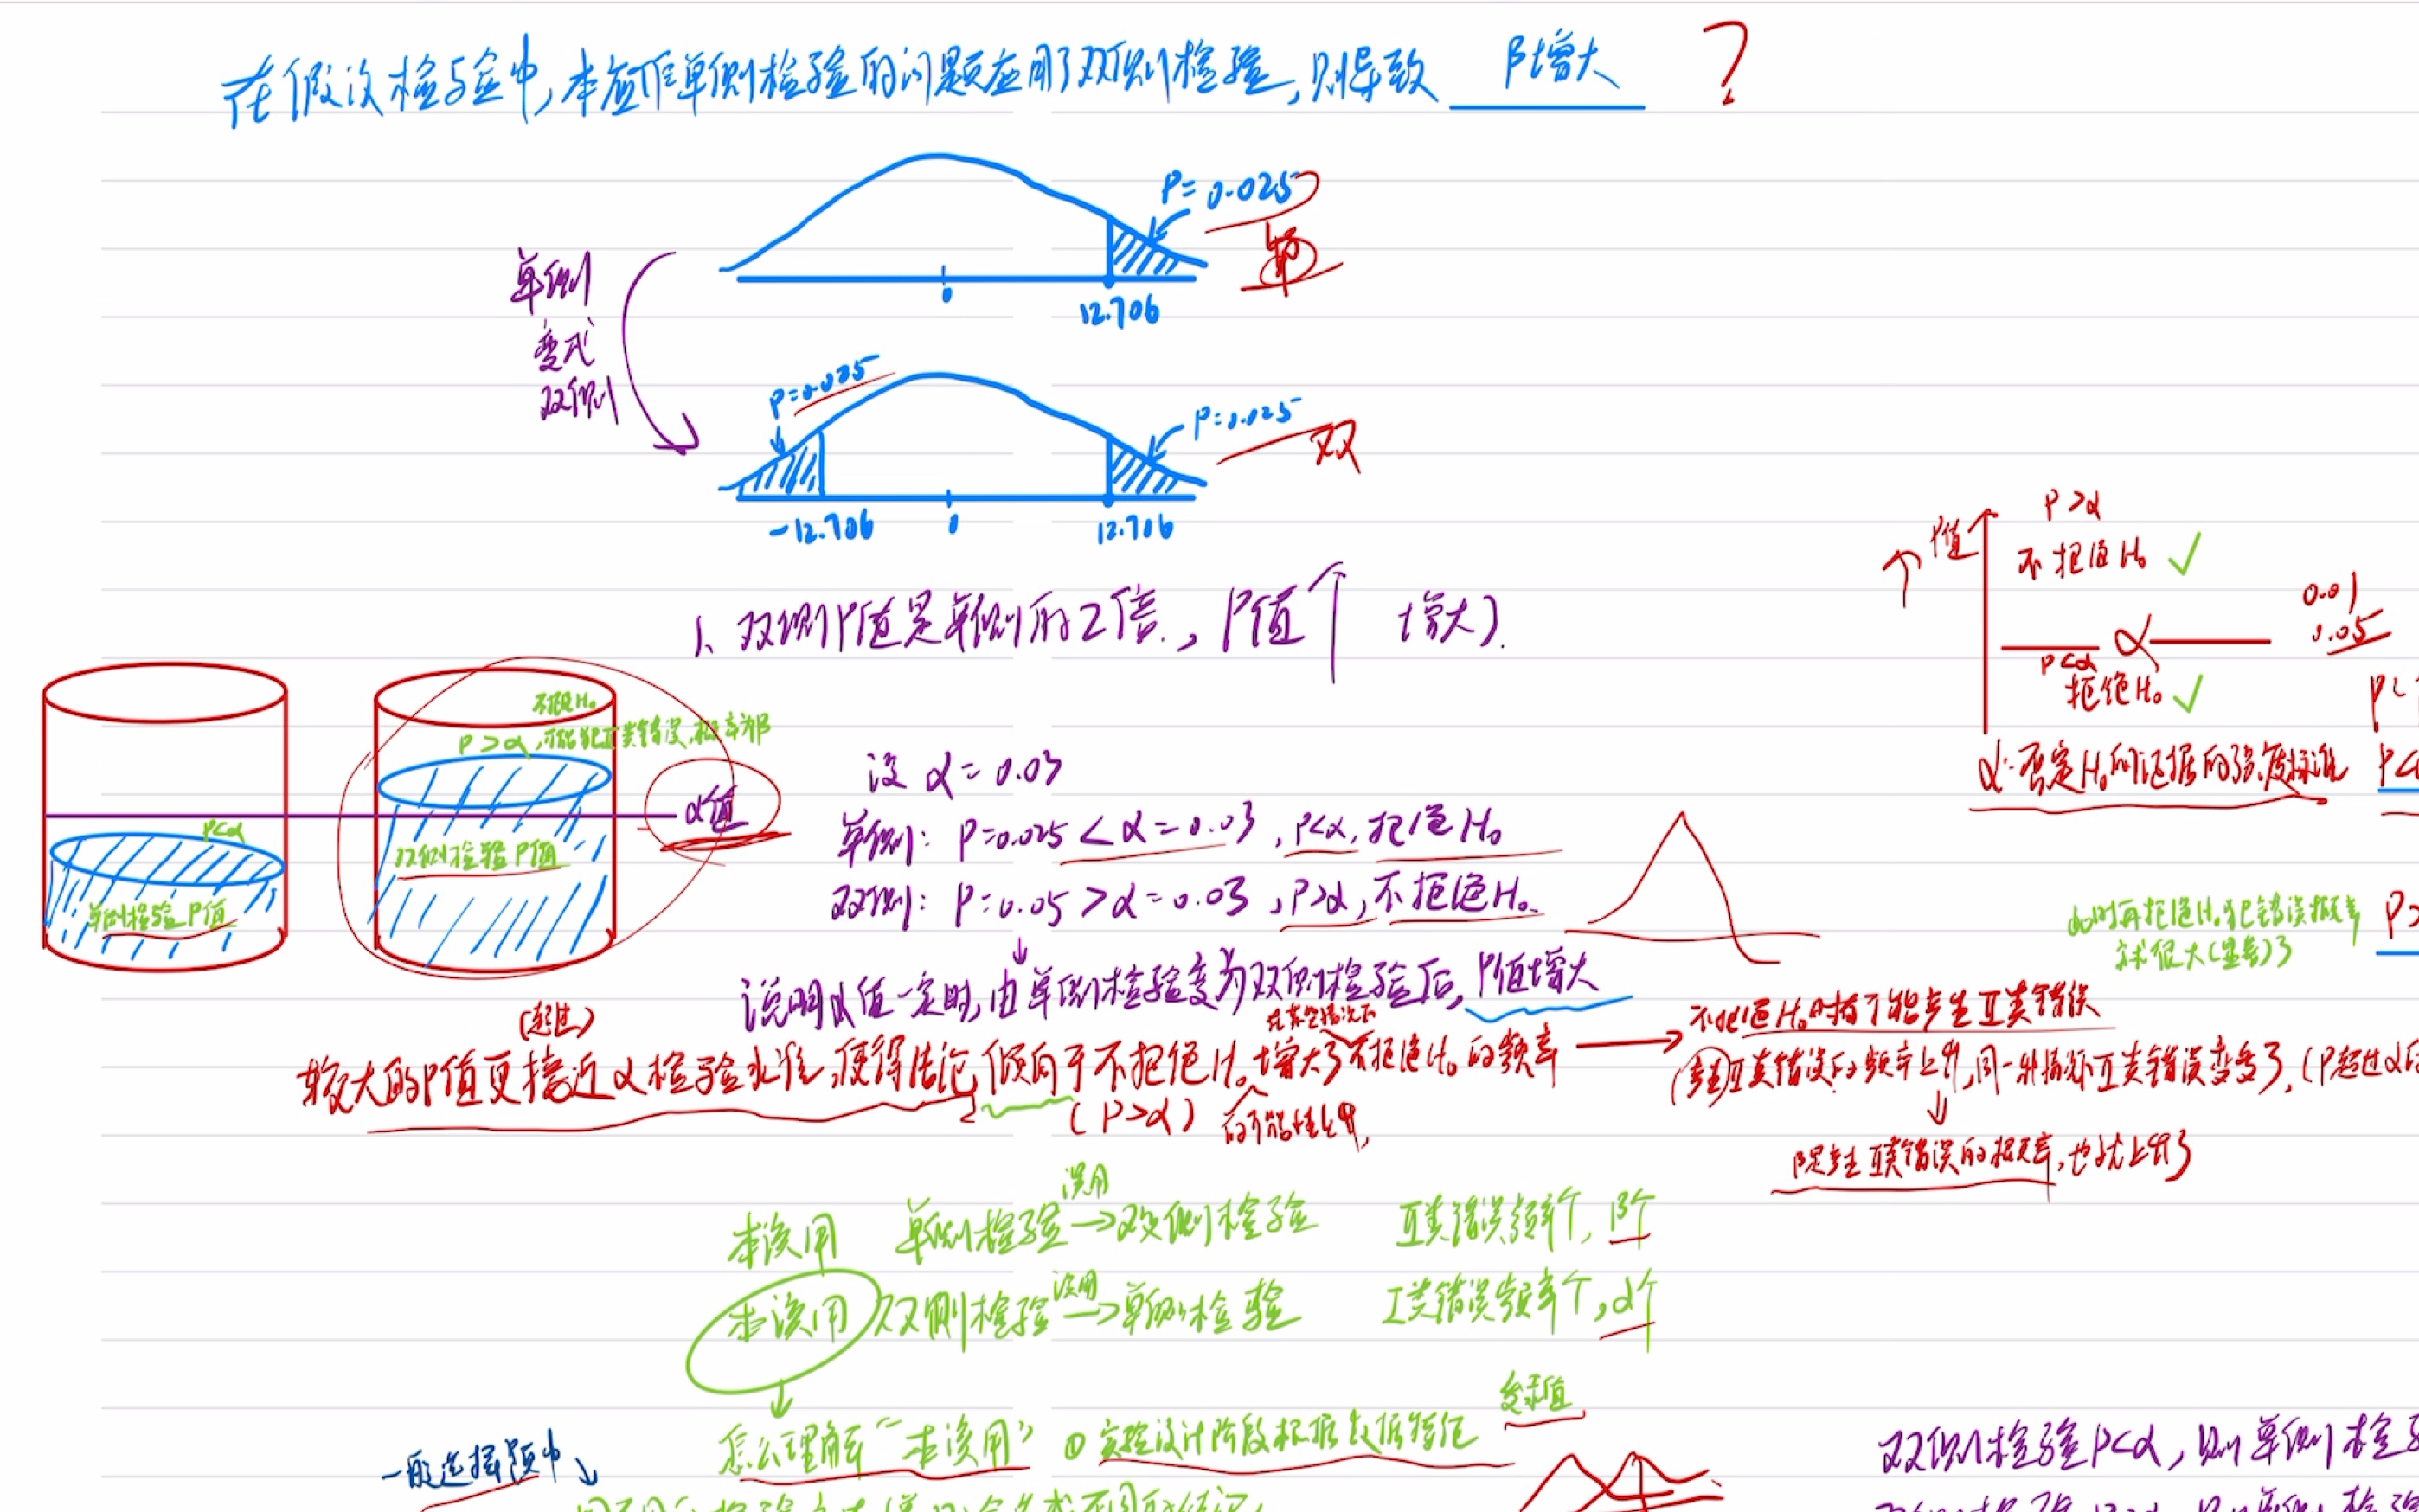 在假设检验中,本应作单侧检验的问题应用了双侧检验,则导致 β增大 ?
P=0.025
单
单侧
变成
双侧
0
12.706
P=0.025
P=0.025
双
-12.706
0
12.706
1、双侧P值是单侧的2倍,P值↑ 增大)
P值
P>α
不拒绝H₀ ✓
α
0.01
0.05
P<α
拒绝H₀ ✓
α:否定H₀的证据的强度标准
不拒绝H₀
P>α,可能犯Ⅱ类错误,概率为β
α值
P<α
单侧检验P值
双侧检验P值
设α=0.03
单侧:P=0.025<α=0.03,P<α,拒绝H₀
双侧:P=0.05>α=0.03,P>α,不拒绝H₀
此时再拒绝H₀犯错误概率
就很大(显著)了
说明α值一定时,由单侧检验变为双侧检验后,P值增大
(超过)
较大的P值更接近α检验水准,使得结论倾向于不拒绝H₀ 增大了不拒绝H₀的频率
(P>α)
的可能性上升,
不拒绝H₀时才可能产生Ⅱ类错误
Ⅱ类错误的频率上升,同一外情况下Ⅱ类错误变多了,(P超过α
β是产生Ⅱ类错误的概率,也就上升了
本该用 单侧检验 误用→ 双侧检验 Ⅱ类错误频率↑,β↑
本该用 双侧检验 误用→ 单侧检验 Ⅰ类错误频率↑,α↑
怎么理解“本该用” ①实验设计阶段根据数据特征
一般选择题中
双侧检验P<α,则单侧检验